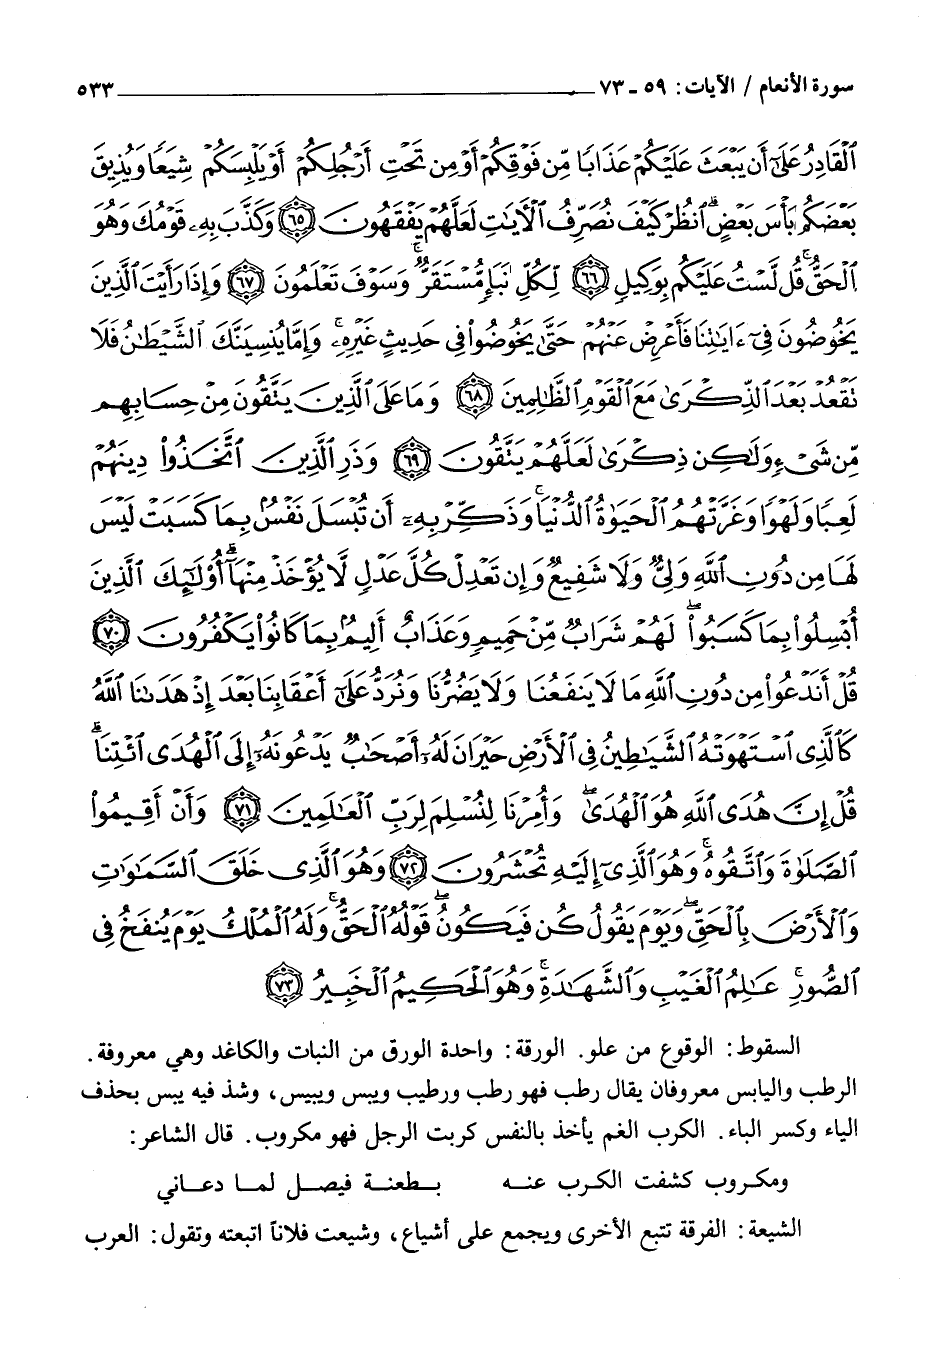 سورة الأنعام / الآيات: ٥٩ ـ ٧٣ ٥٣٣
ٱلْقَادِرُ عَلَىٰٓ أَن يَبْعَثَ عَلَيْكُمْ عَذَابًا مِّن فَوْقِكُمْ أَوْ مِن تَحْتِ أَرْجُلِكُمْ أَوْ يَلْبِسَكُمْ شِيَعًا وَيُذِيقَ
بَعْضَكُم بَأْسَ بَعْضٍ ۗ ٱنظُرْ كَيْفَ نُصَرِّفُ ٱلْآيَٰتِ لَعَلَّهُمْ يَفْقَهُونَ ﴿٦٥﴾ وَكَذَّبَ بِهِۦ قَوْمُكَ وَهُوَ
ٱلْحَقُّ ۚ قُل لَّسْتُ عَلَيْكُم بِوَكِيلٍ ﴿٦٦﴾ لِّكُلِّ نَبَإٍ مُّسْتَقَرٌّ ۚ وَسَوْفَ تَعْلَمُونَ ﴿٦٧﴾ وَإِذَا رَأَيْتَ ٱلَّذِينَ
يَخُوضُونَ فِىٓ ءَايَٰتِنَا فَأَعْرِضْ عَنْهُمْ حَتَّىٰ يَخُوضُوا۟ فِى حَدِيثٍ غَيْرِهِۦ ۚ وَإِمَّا يُنسِيَنَّكَ ٱلشَّيْطَٰنُ فَلَا
تَقْعُدْ بَعْدَ ٱلذِّكْرَىٰ مَعَ ٱلْقَوْمِ ٱلظَّٰلِمِينَ ﴿٦٨﴾ وَمَا عَلَى ٱلَّذِينَ يَتَّقُونَ مِنْ حِسَابِهِم
مِّن شَىْءٍ وَلَٰكِن ذِكْرَىٰ لَعَلَّهُمْ يَتَّقُونَ ﴿٦٩﴾ وَذَرِ ٱلَّذِينَ ٱتَّخَذُوا۟ دِينَهُمْ
لَعِبًا وَلَهْوًا وَغَرَّتْهُمُ ٱلْحَيَوٰةُ ٱلدُّنْيَا ۚ وَذَكِّرْ بِهِۦٓ أَن تُبْسَلَ نَفْسٌۢ بِمَا كَسَبَتْ لَيْسَ
لَهَا مِن دُونِ ٱللَّهِ وَلِىٌّ وَلَا شَفِيعٌ وَإِن تَعْدِلْ كُلَّ عَدْلٍ لَّا يُؤْخَذْ مِنْهَآ ۗ أُو۟لَٰٓئِكَ ٱلَّذِينَ
أُبْسِلُوا۟ بِمَا كَسَبُوا۟ ۖ لَهُمْ شَرَابٌ مِّنْ حَمِيمٍ وَعَذَابٌ أَلِيمٌۢ بِمَا كَانُوا۟ يَكْفُرُونَ ﴿٧٠﴾
قُلْ أَنَدْعُوا۟ مِن دُونِ ٱللَّهِ مَا لَا يَنفَعُنَا وَلَا يَضُرُّنَا وَنُرَدُّ عَلَىٰٓ أَعْقَابِنَا بَعْدَ إِذْ هَدَىٰنَا ٱللَّهُ
كَٱلَّذِى ٱسْتَهْوَتْهُ ٱلشَّيَٰطِينُ فِى ٱلْأَرْضِ حَيْرَانَ لَهُۥٓ أَصْحَٰبٌ يَدْعُونَهُۥٓ إِلَى ٱلْهُدَى ٱئْتِنَا ۗ
قُلْ إِنَّ هُدَى ٱللَّهِ هُوَ ٱلْهُدَىٰ ۖ وَأُمِرْنَا لِنُسْلِمَ لِرَبِّ ٱلْعَٰلَمِينَ ﴿٧١﴾ وَأَنْ أَقِيمُوا۟
ٱلصَّلَوٰةَ وَٱتَّقُوهُ ۚ وَهُوَ ٱلَّذِىٓ إِلَيْهِ تُحْشَرُونَ ﴿٧٢﴾ وَهُوَ ٱلَّذِى خَلَقَ ٱلسَّمَٰوَٰتِ
وَٱلْأَرْضَ بِٱلْحَقِّ ۖ وَيَوْمَ يَقُولُ كُن فَيَكُونُ ۖ قَوْلُهُ ٱلْحَقُّ ۚ وَلَهُ ٱلْمُلْكُ يَوْمَ يُنفَخُ فِى
ٱلصُّورِ ۚ عَٰلِمُ ٱلْغَيْبِ وَٱلشَّهَٰدَةِ ۚ وَهُوَ ٱلْحَكِيمُ ٱلْخَبِيرُ ﴿٧٣﴾
السقوط: الوقوع من علو. الورقة: واحدة الورق من النبات والكاغد وهي معروفة.
الرطب واليابس معروفان يقال رطب فهو رطب ورطيب ويبس ويبيس، وشذ فيه يبس بحذف
الياء وكسر الباء. الكرب الغم يأخذ بالنفس كربت الرجل فهو مكروب. قال الشاعر:
ومكروب كشفت الكرب عنه بطعنة فيصل لما دعاني
الشيعة: الفرقة تتبع الأخرى ويجمع على أشياع، وشيعت فلاناً اتبعته وتقول: العرب